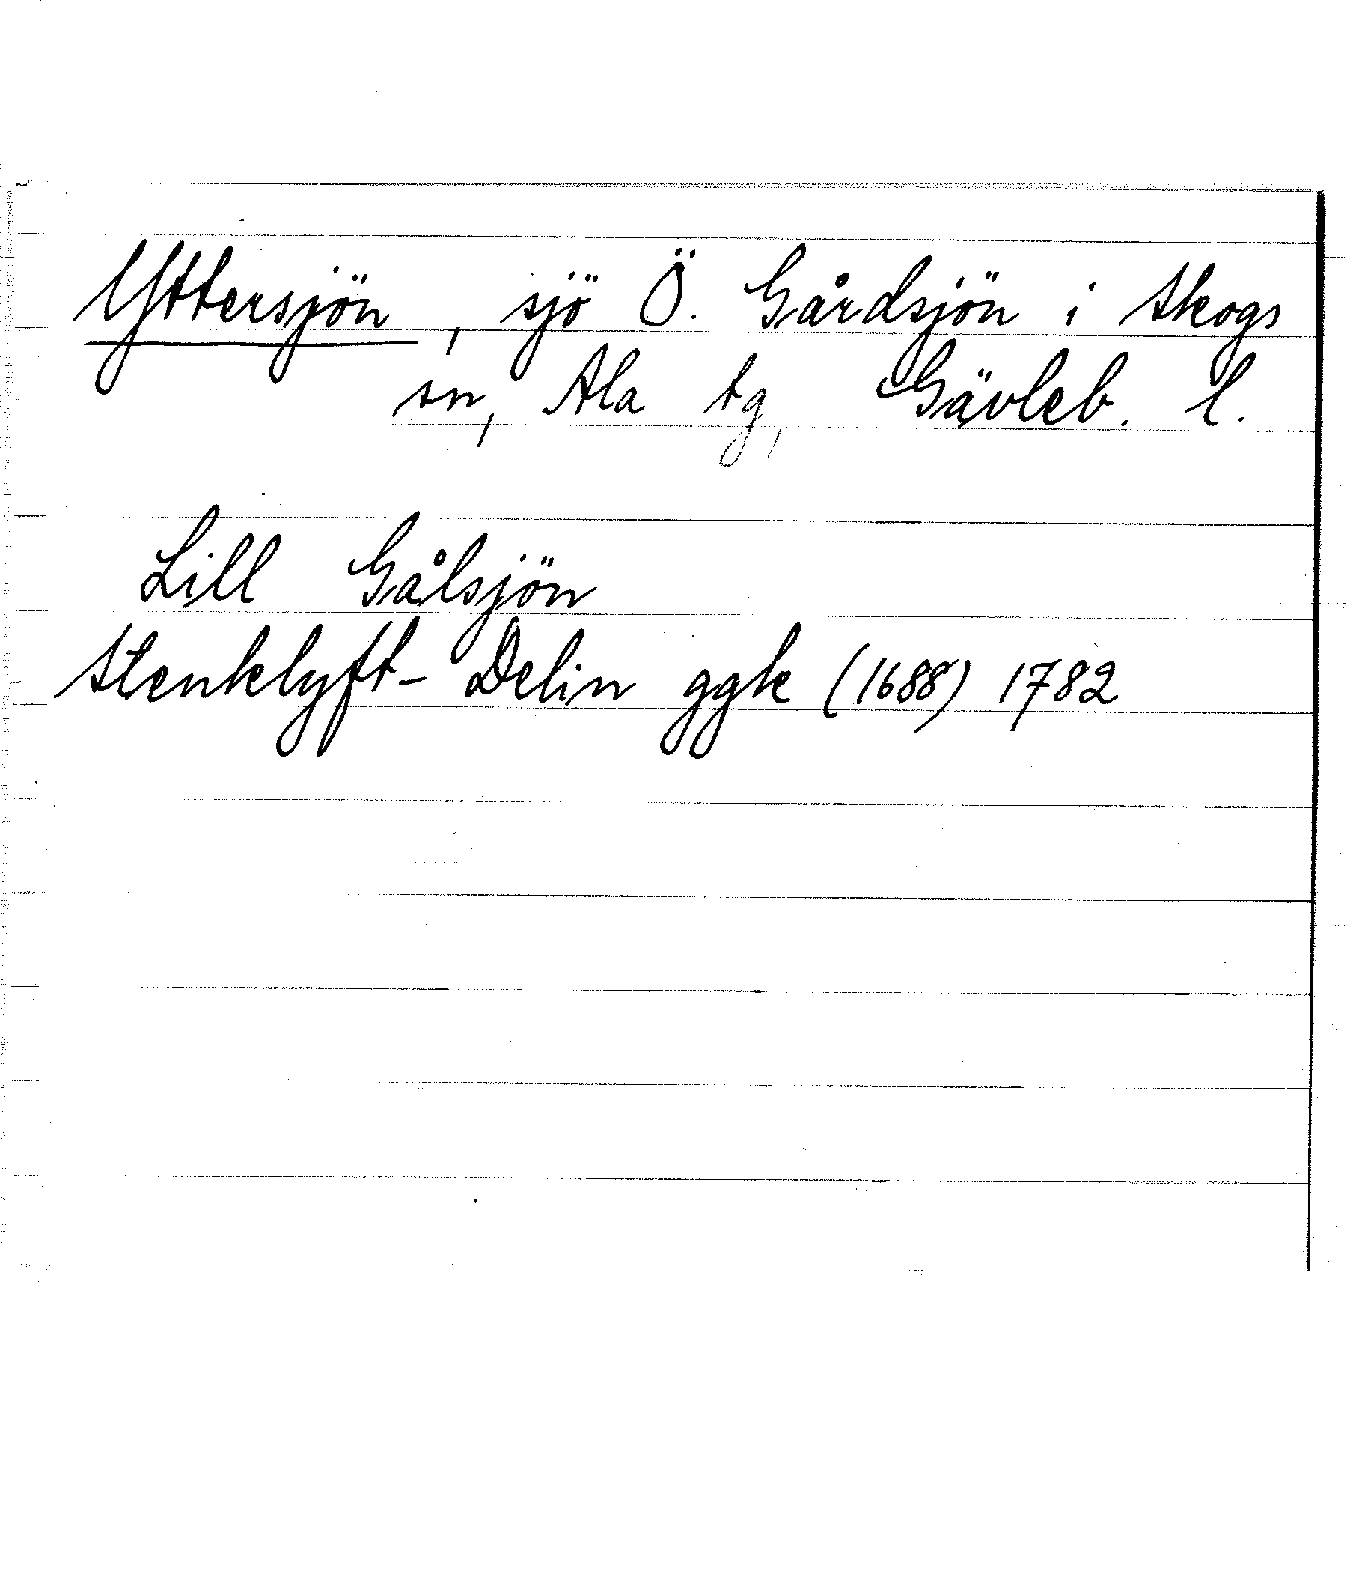 Yttersjön, sjö Ö. Gårdsjön i Skogs
sn, Ala tg, Gävleb. l.
Lill Gålsjön
Stenklyft- Delin ggk (1688) 1782